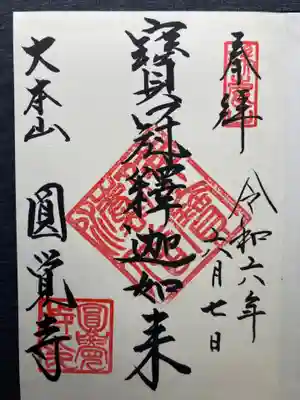 奉拝
令和六年
八月七日
寳冠釋迦如来
大本山
圓覚寺